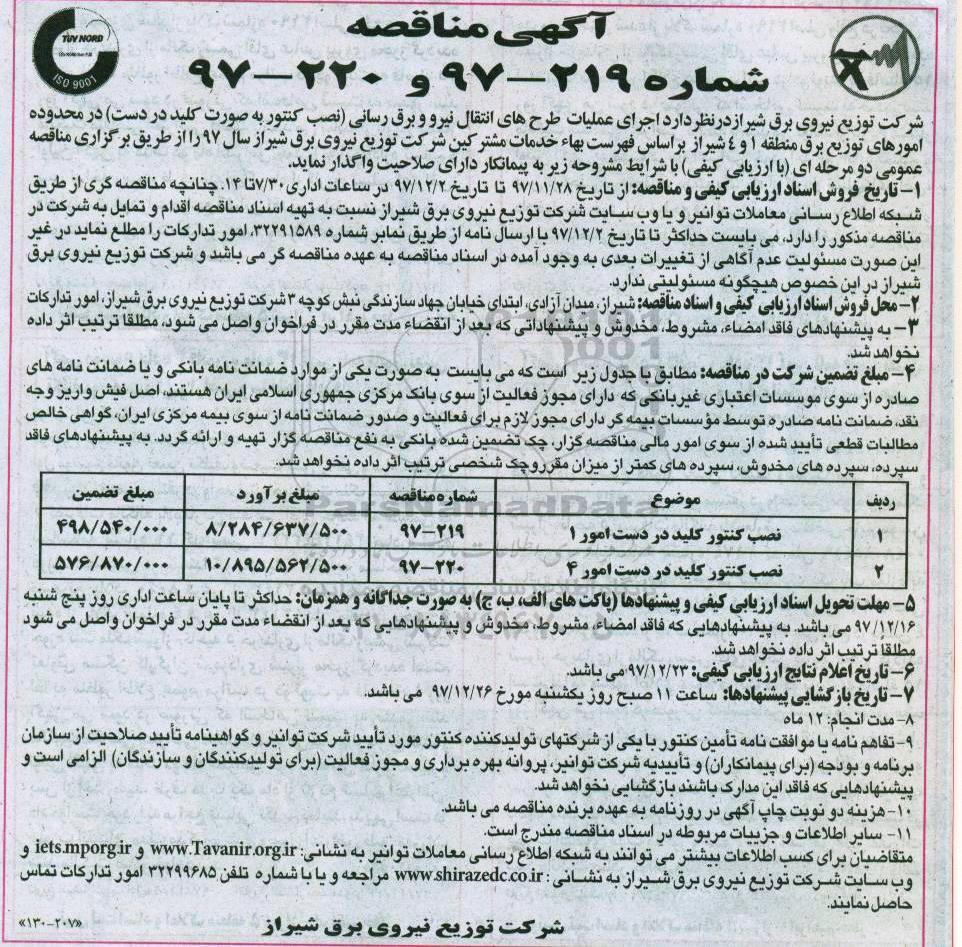 آگهی مناقصه
شماره ۲۱۹-۹۷ و ۲۲۰-۹۷
TÜV NORD
ISO 9001
شرکت توزیع نیروی برق شیراز در نظر دارد اجرای عملیات طرح های انتقال نیرو و برق رسانی (نصب کنتور به صورت کلید در دست) در محدوده
امورهای توزیع برق منطقه ۱ و ۴ شیراز براساس فهرست بهاء خدمات مشترکین شرکت توزیع نیروی برق شیراز سال ۹۷ را از طریق برگزاری مناقصه
عمومی دو مرحله ای (با ارزیابی کیفی) با شرایط مشروحه زیر به پیمانکار دارای صلاحیت واگذار نماید.
۱- تاریخ فروش اسناد ارزیابی کیفی و مناقصه: از تاریخ ۹۷/۱۱/۲۸ تا تاریخ ۹۷/۱۲/۲ در ساعات اداری ۷/۳۰ تا ۱۴. چنانچه مناقصه گری از طریق
شبکه اطلاع رسانی معاملات توانیر و یا وب سایت شرکت توزیع نیروی برق شیراز نسبت به تهیه اسناد مناقصه اقدام و تمایل به شرکت در
مناقصه مذکور را دارد، می بایست حداکثر تا تاریخ ۹۷/۱۲/۲ با ارسال نامه از طریق نمابر شماره ۳۲۲۹۱۵۸۹، امور تدارکات را مطلع نماید در غیر
این صورت مسئولیت عدم آگاهی از تغییرات بعدی به وجود آمده در اسناد مناقصه به عهده مناقصه گر می باشد و شرکت توزیع نیروی برق
شیراز در این خصوص هیچگونه مسئولیتی ندارد.
۲- محل فروش اسناد ارزیابی کیفی و اسناد مناقصه: شیراز، میدان آزادی، ابتدای خیابان جهاد سازندگی نبش کوچه ۳ شرکت توزیع نیروی برق شیراز، امور تدارکات
۳- به پیشنهادهای فاقد امضاء، مشروط، مخدوش و پیشنهاداتی که بعد از انقضاء مدت مقرر در فراخوان واصل می شود، مطلقا ترتیب اثر داده
نخواهد شد.
۴- مبلغ تضمین شرکت در مناقصه: مطابق با جدول زیر است که می بایست به صورت یکی از موارد ضمانت نامه بانکی و یا ضمانت نامه های
صادره از سوی موسسات اعتباری غیربانکی که دارای مجوز فعالیت از سوی بانک مرکزی جمهوری اسلامی ایران هستند، اصل فیش واریز وجه
نقد، ضمانت نامه صادره توسط مؤسسات بیمه گر دارای مجوز لازم برای فعالیت و صدور ضمانت نامه از سوی بیمه مرکزی ایران، گواهی خالص
مطالبات قطعی تأیید شده از سوی امور مالی مناقصه گزار، چک تضمین شده بانکی به نفع مناقصه گزار تهیه و ارائه گردد. به پیشنهادهای فاقد
سپرده، سپرده های مخدوش، سپرده های کمتر از میزان مقرر و چک شخصی ترتیب اثر داده نخواهد شد.
ردیف موضوع شماره مناقصه مبلغ برآورد مبلغ تضمین
۱ نصب کنتور کلید در دست امور ۱ ۹۷-۲۱۹ ۸/۲۸۴/۶۳۷/۵۰۰ ۴۹۸/۵۴۰/۰۰۰
۲ نصب کنتور کلید در دست امور ۴ ۹۷-۲۲۰ ۱۰/۸۹۵/۵۶۲/۵۰۰ ۵۷۶/۸۷۰/۰۰۰
ParsNamadData
۵- مهلت تحویل اسناد ارزیابی کیفی و پیشنهادها (پاکت های الف، ب، ج) به صورت جداگانه و همزمان: حداکثر تا پایان ساعت اداری روز پنج شنبه
۹۷/۱۲/۱۶ می باشد. به پیشنهادهایی که فاقد امضاء، مشروط، مخدوش و پیشنهادهایی که بعد از انقضاء مدت مقرر در فراخوان واصل می شود
مطلقا ترتیب اثر داده نخواهد شد.
۶- تاریخ اعلام نتایج ارزیابی کیفی: ۹۷/۱۲/۲۳ می باشد.
۷- تاریخ بازگشایی پیشنهادها: ساعت ۱۱ صبح روز یکشنبه مورخ ۹۷/۱۲/۲۶ می باشد.
۸- مدت انجام: ۱۲ ماه
۹- تفاهم نامه یا موافقت نامه تأمین کنتور با یکی از شرکتهای تولیدکننده کنتور مورد تأیید شرکت توانیر و گواهینامه تأیید صلاحیت از سازمان
برنامه و بودجه (برای پیمانکاران) و تأییدیه شرکت توانیر، پروانه بهره برداری و مجوز فعالیت (برای تولیدکنندگان و سازندگان) الزامی است و
پیشنهادهایی که فاقد این مدارک باشند بازگشایی نخواهد شد.
۱۰- هزینه دو نوبت چاپ آگهی در روزنامه به عهده برنده مناقصه می باشد.
۱۱- سایر اطلاعات و جزییات مربوطه در اسناد مناقصه مندرج است.
متقاضیان برای کسب اطلاعات بیشتر می توانند به شبکه اطلاع رسانی معاملات توانیر به نشانی: www.Tavanir.org.ir و iets.mporg.ir و
وب سایت شرکت توزیع نیروی برق شیراز به نشانی: www.shirazedc.co.ir مراجعه و یا با شماره تلفن ۳۲۲۹۹۶۸۵ امور تدارکات تماس
حاصل نمایند.
شرکت توزیع نیروی برق شیراز
«۱۳۰-۲۰۷»